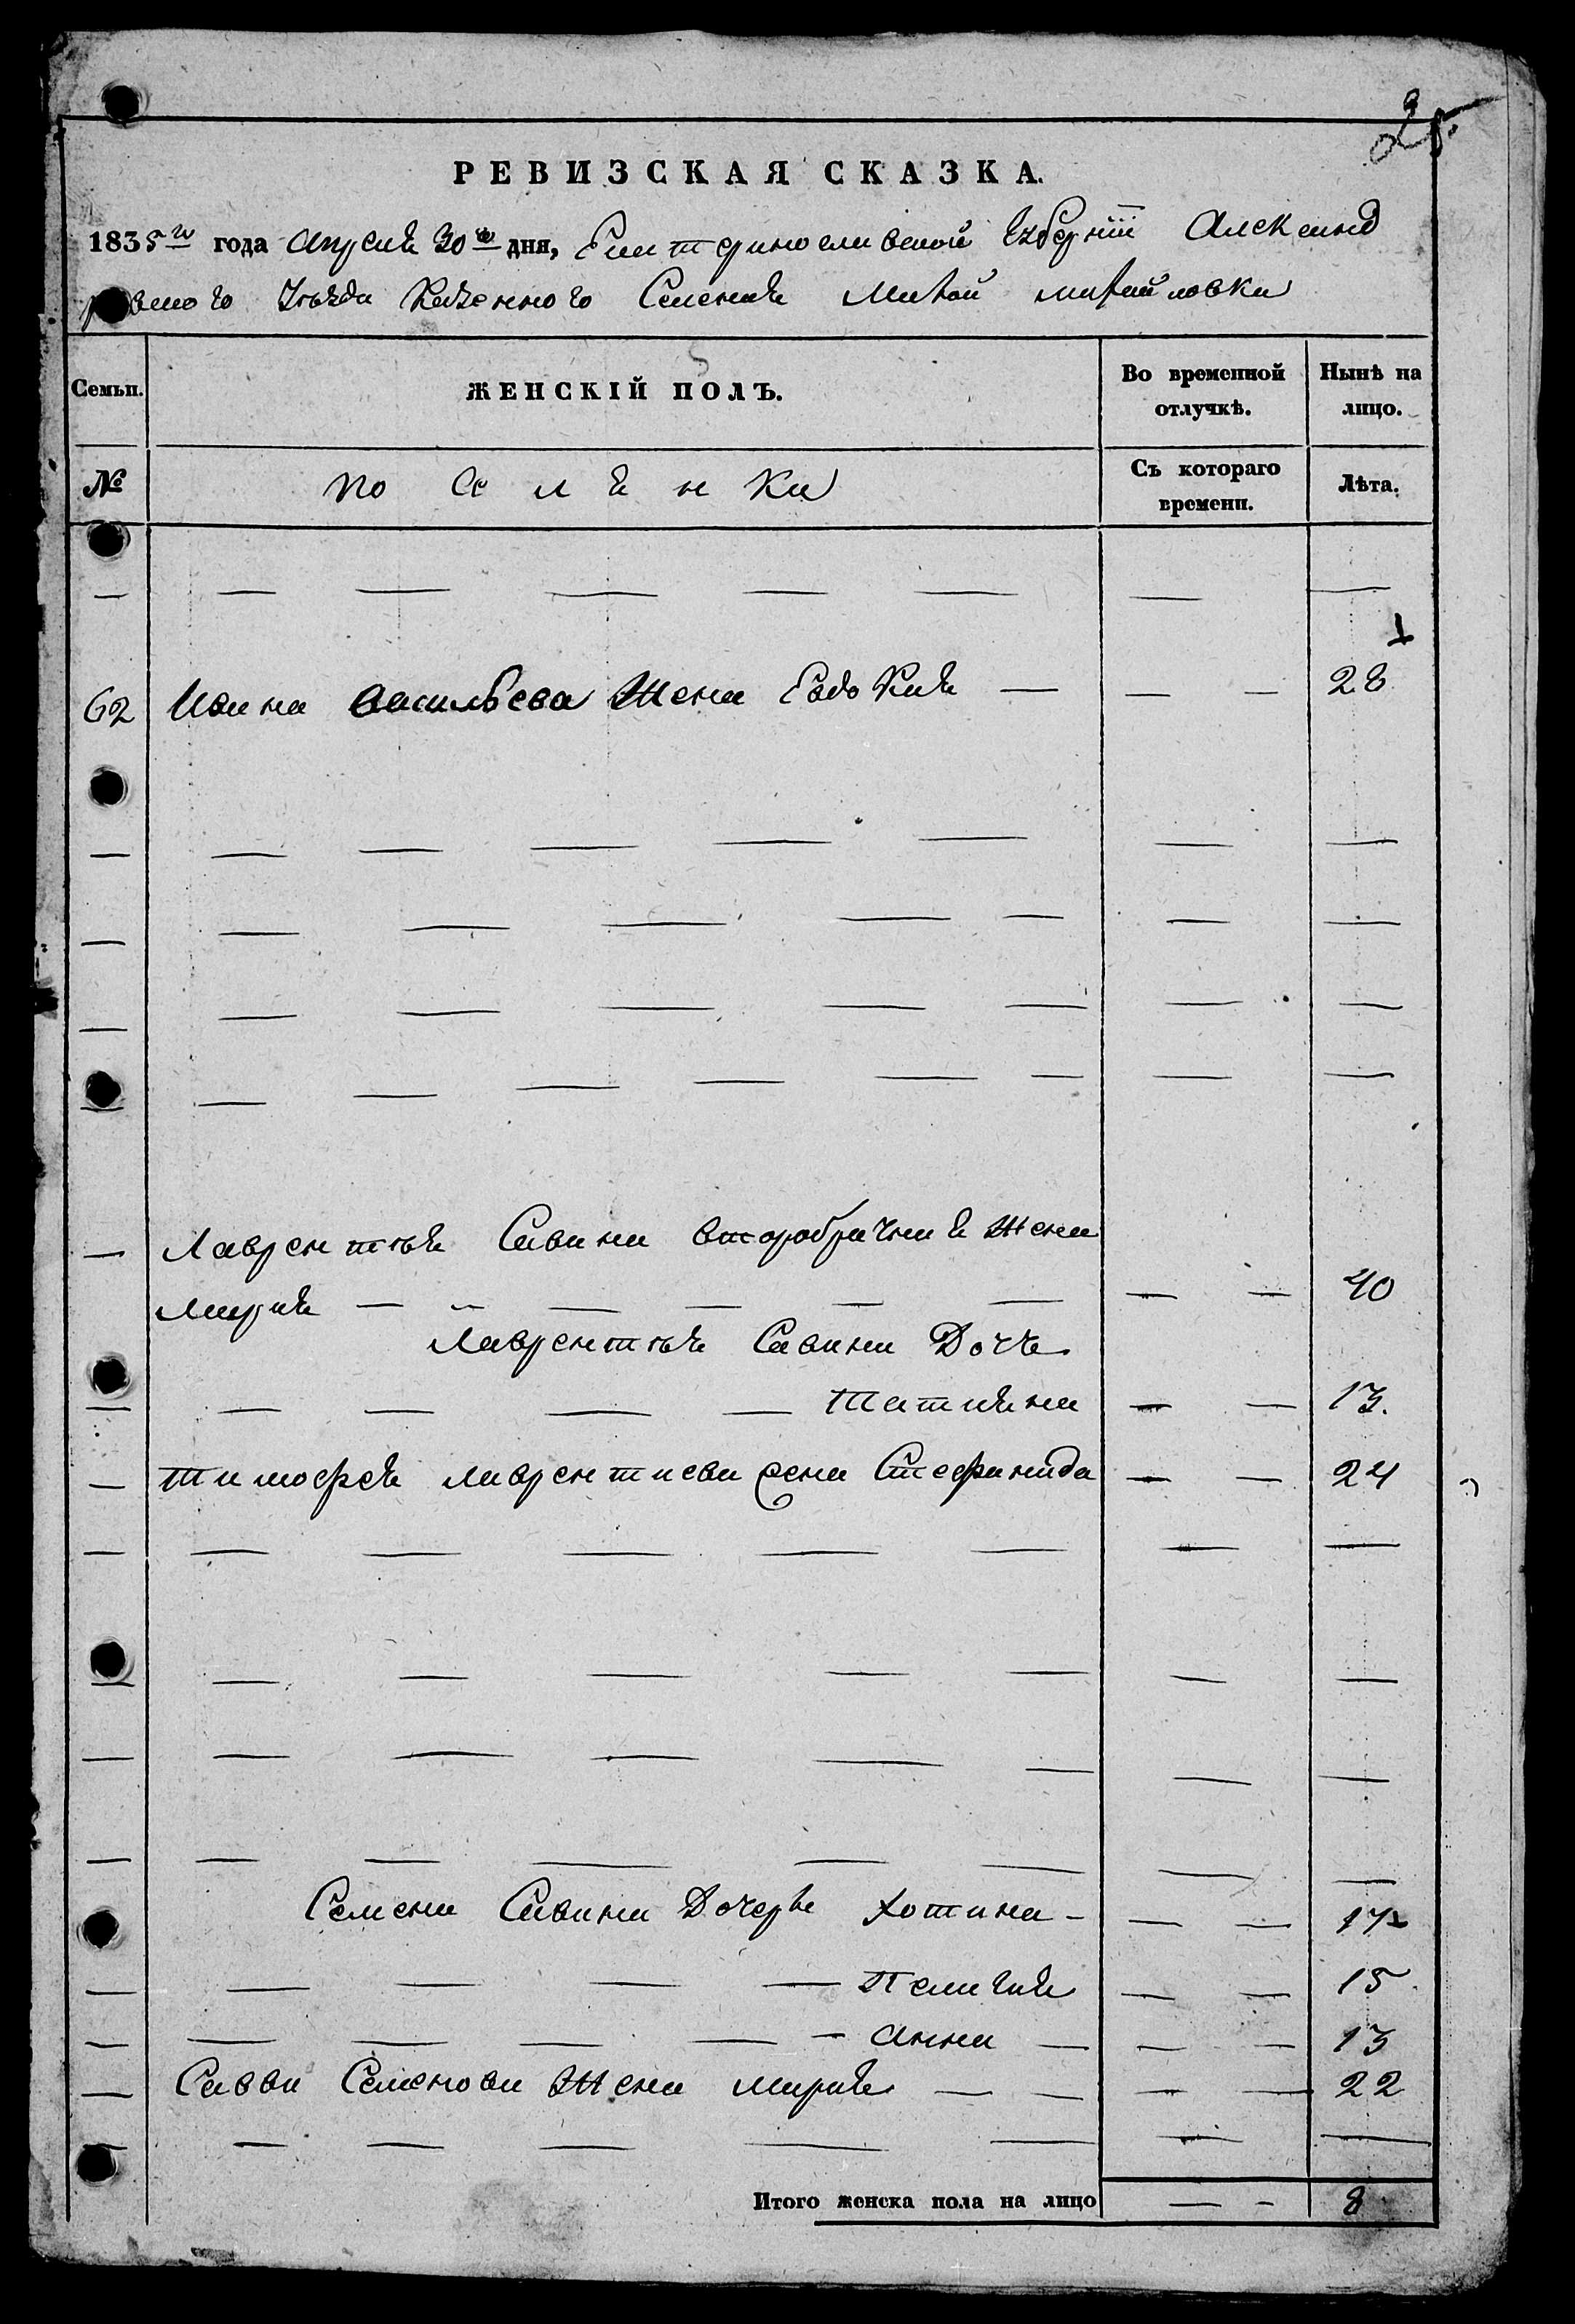 25.
РЕВИЗСКАЯ СКАЗКА.
1835го года Апреля 30го дня, Екатеринославской Губернiи Александ
ровского Уѣзда Казенного Селения Малой михайловки
Семьи. ЖЕНСКІЙ ПОЛЪ. Во временной отлучкѣ. Нынѣ на лицо.
№ поселянки Съ котораго времени. Лѣта.
— — — — — — — —
62 Ивана васильева Жена Евдокия — — — 28
— — — — — — — —
— — — — — — — —
— — — — — — — —
— — — — — — — —
— Лаврентья Савина второбрачная Жена
Мария — — — — — — — — 40
Лаврентья Савина Дочь
— — — — — Татияна — — 13.
— Тимофея лаврентиева жена Стефанида — — 24
— — — — — — — —
— — — — — — — —
— — — — — — — —
— — — — — — — —
Семена Савина Дочери Хотина — — — 17
— — — — — Пелагия — — 15
— — — — — — Анна — — — 13
— Саввы Семенова Жена мария — — — — 22
— — — — — — — —
Итого женска пола на лицо — — 8